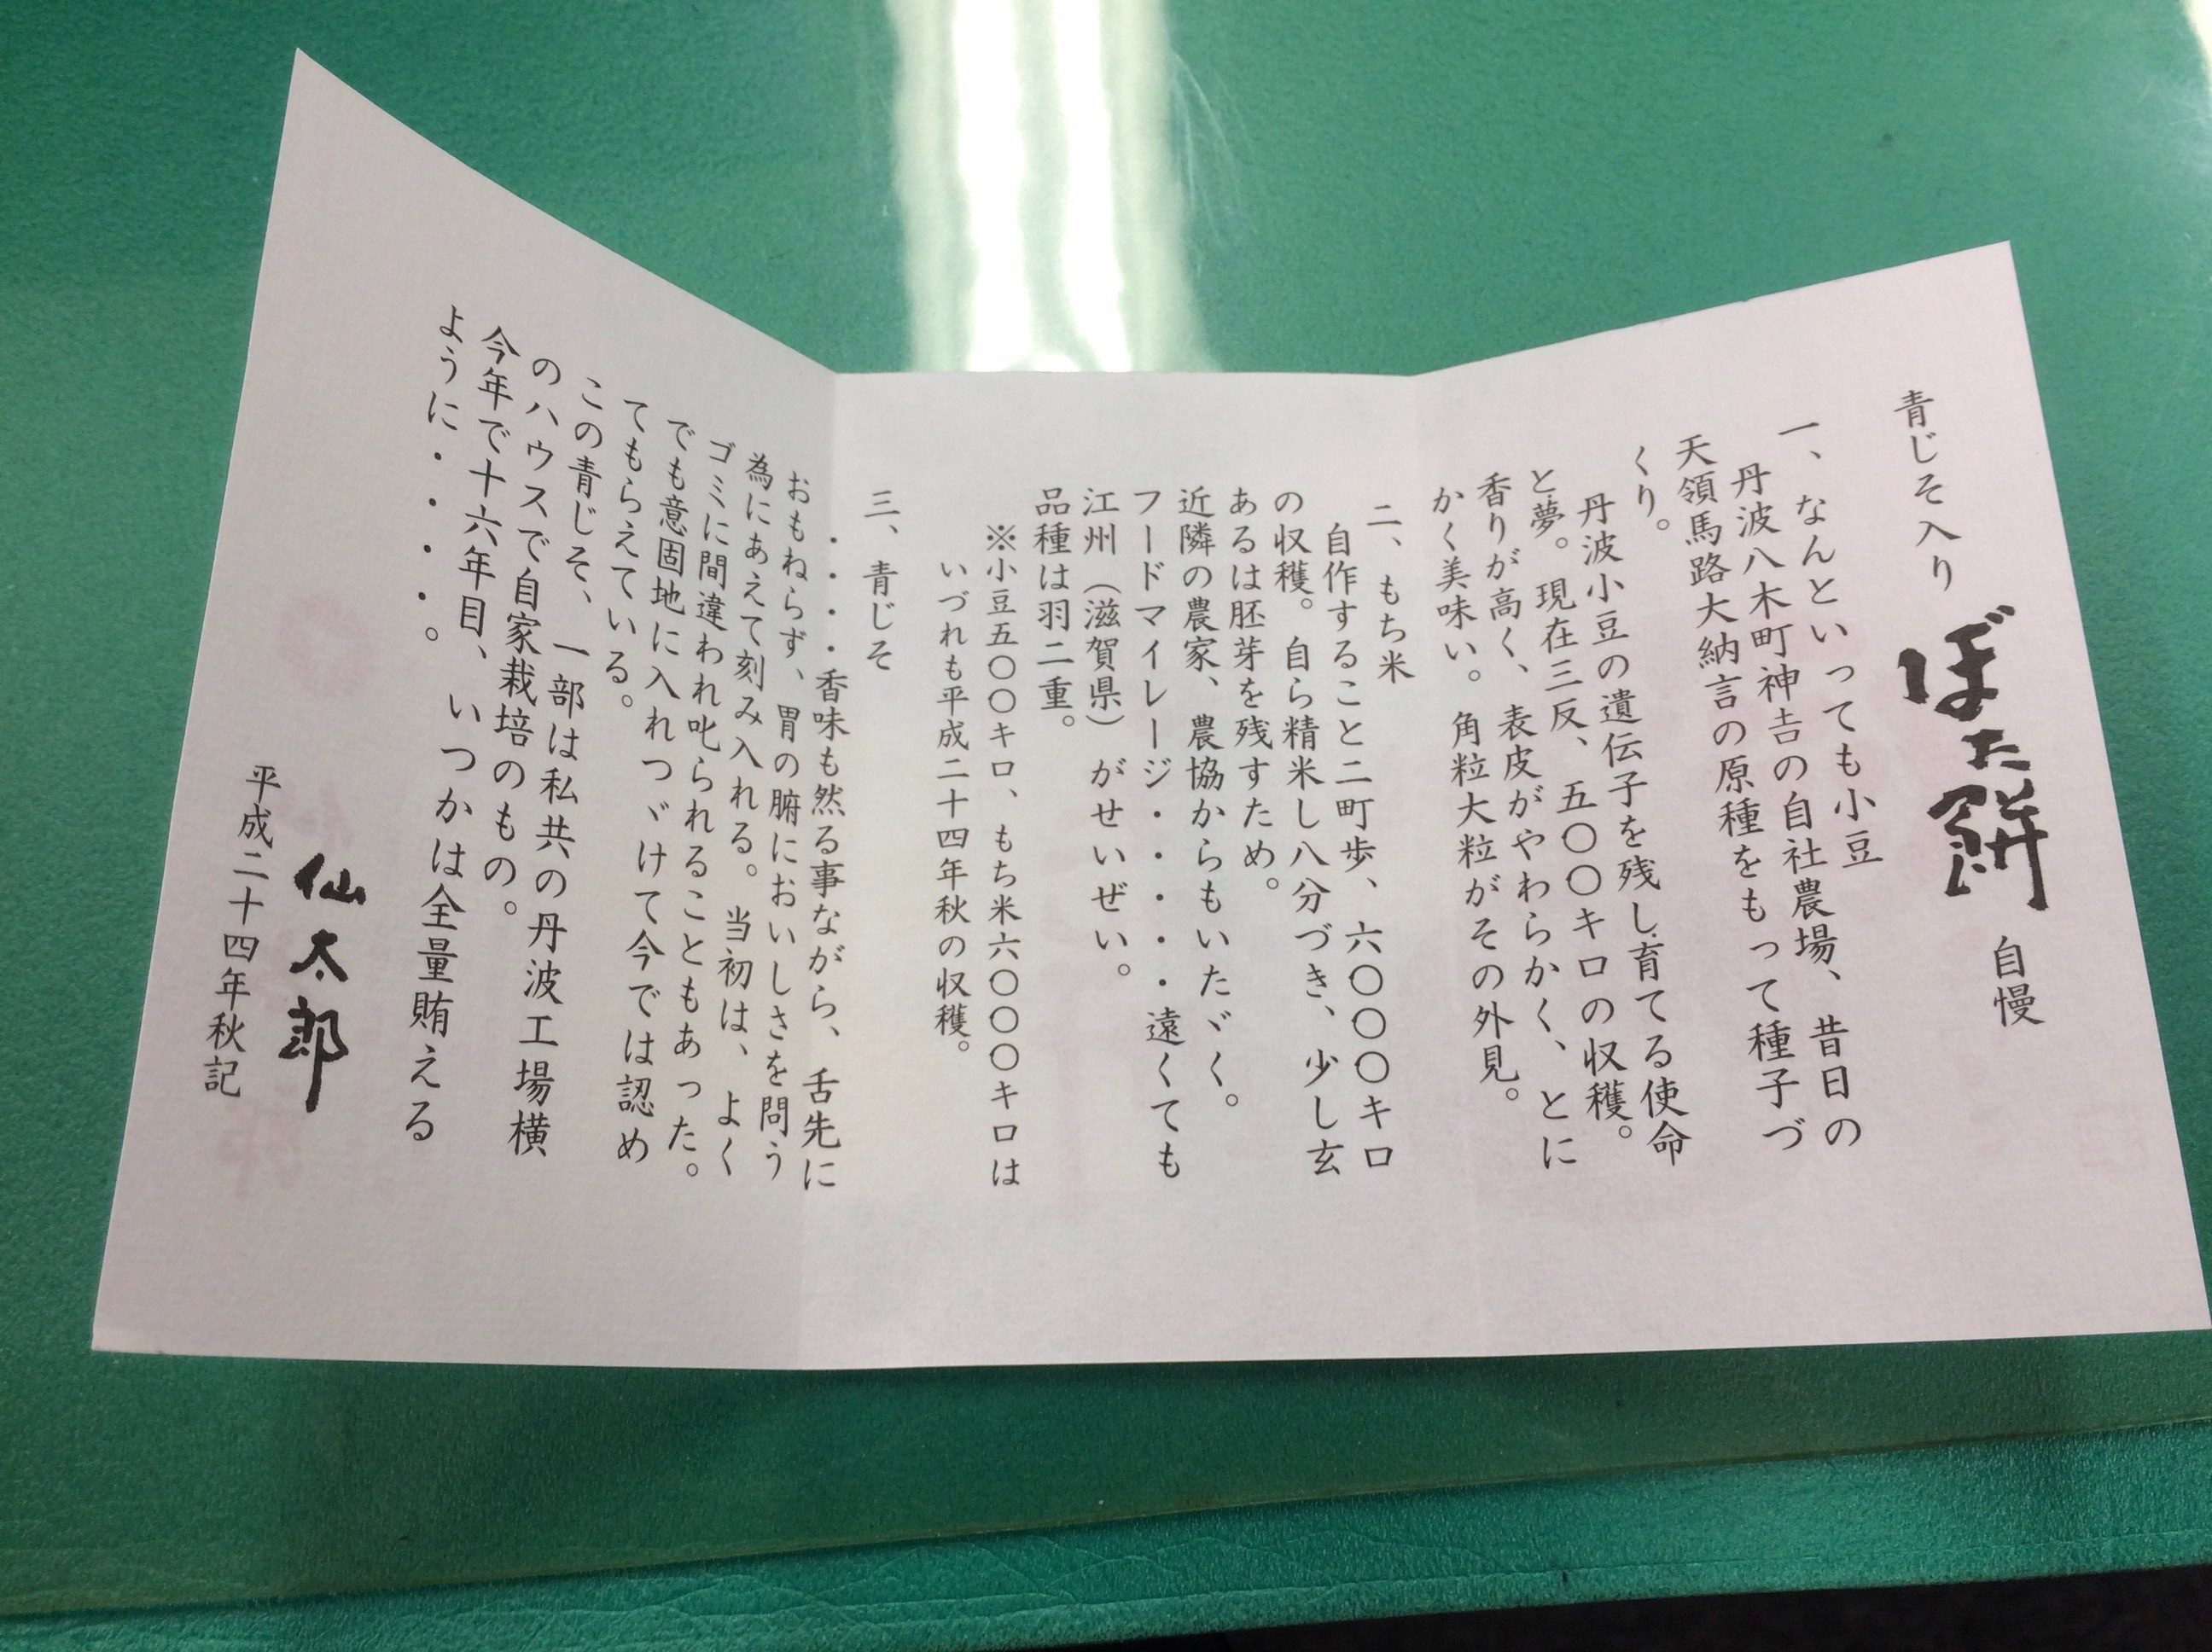 青じそ入り ぼた餅 自慢
一、なんといっても小豆
丹波八木町神吉の自社農場、昔日の
天領馬路大納言の原種をもって種子づ
くり。
丹波小豆の遺伝子を残し育てる使命
と夢。現在三反、五〇〇キロの収穫。
香りが高く、表皮がやわらかく、とに
かく美味い。角粒大粒がその外見。
二、もち米
自作すること二町歩、六〇〇〇キロ
の収穫。自ら精米し八分づき、少し玄
あるは胚芽を残すため。
近隣の農家、農協からもいたゞく。
フードマイレージ・・・・・遠くても
江州（滋賀県）がせいぜい。
品種は羽二重。
※小豆五〇〇キロ、もち米六〇〇〇キロは
いづれも平成二十四年秋の収穫。
三、青じそ
・・・・香味も然る事ながら、舌先に
おもねらず、胃の腑においしさを問う
為にあえて刻み入れる。当初は、よく
ゴミに間違われ叱られることもあった。
でも意固地に入れつゞけて今では認め
てもらえている。
この青じそ、一部は私共の丹波工場横
のハウスで自家栽培のもの。
今年で十六年目、いつかは全量賄える
ように・・・・。
仙太郎
平成二十四年秋記